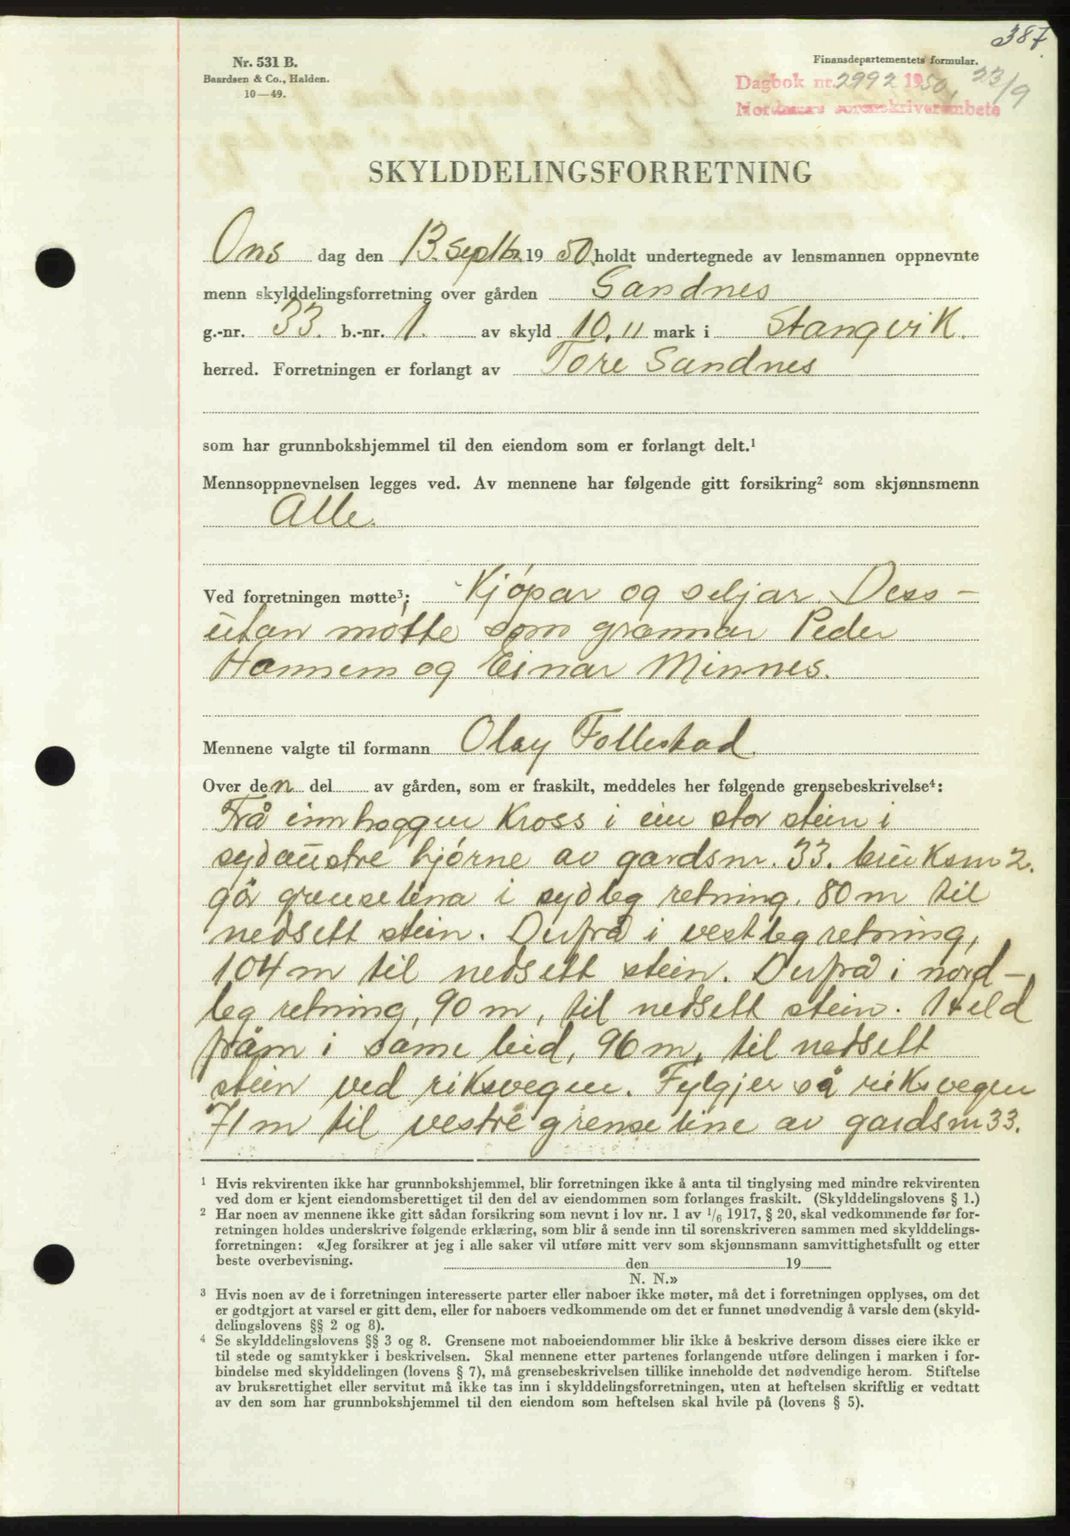 387.
Nr. 531 B.
Baardsen & Co., Halden.
10—49.
Finansdepartementets formular.
Dagbok nr. 2992 1950, 23/9
Nordmøre sorenskriverembete
SKYLDDELINGSFORRETNING
Ons dag den 13. septbr. 19 50. holdt undertegnede av lensmannen oppnevnte
menn skylddelingsforretning over gården Sandnes
g.-nr. 33. b.-nr. 1. av skyld 10,11 mark i Stangvik.
herred. Forretningen er forlangt av Tore Sandnes
som har grunnbokshjemmel til den eiendom som er forlangt delt.¹
Mennsoppnevnelsen legges ved. Av mennene har følgende gitt forsikring² som skjønnsmenn
Alle.
Ved forretningen møtte³: Kjøpar og seljar. Dess-
utan møtte som grannar Peder
Hannem og Einar Minnes.
Mennene valgte til formann Olay Follestad.
Over den del av gården, som er fraskilt, meddeles her følgende grensebeskrivelse⁴:
Frå innhoggen Kross i ein stor stein i
sydaustre hjørne av gardsnr. 33. bruksnr 2.
går grenselina i sydleg retning, 80 m til
nedsett stein. Derfrå i vestleg retning,
104 m til nedsett stein. Derfrå i nord-
leg retning, 90 m, til nedsett stein. Held
fram i same leid, 96 m, til nedsett
stein ved riksvegen. Fylgjer så riksvegen
71 m til vestre grenseline av gardsnr 33.
¹ Hvis rekvirenten ikke har grunnbokshjemmel, blir forretningen ikke å anta til tinglysing med mindre rekvirenten
ved dom er kjent eiendomsberettiget til den del av eiendommen som forlanges fraskilt. (Skylddelingslovens § 1.)
² Har noen av mennene ikke gitt sådan forsikring som nevnt i lov nr. 1 av 1/6 1917, § 20, skal vedkommende før for-
retningen holdes underskrive følgende erklæring, som blir å sende inn til sorenskriveren sammen med skylddelings-
forretningen: «Jeg forsikrer at jeg i alle saker vil utføre mitt verv som skjønnsmann samvittighetsfullt og etter
beste overbevisning. den 19
N. N.»
³ Hvis noen av de i forretningen interesserte parter eller naboer ikke møter, må det i forretningen opplyses, om det
er godtgjort at varsel er gitt dem, eller for naboers vedkommende om det er funnet unødvendig å varsle dem (skyld-
delingslovens §§ 2 og 8).
⁴ Se skylddelingslovens §§ 3 og 8. Grensene mot naboeiendommer blir ikke å beskrive dersom disses eiere ikke er
til stede og samtykker i beskrivelsen. Skal mennene etter partenes forlangende utføre delingen i marken i for-
bindelse med skylddelingen (lovens § 7), må grensebeskrivelsen tillike inneholde det nødvendige herom. Stiftelse
av bruksrettighet eller servitut må ikke tas inn i skylddelingsforretningen, uten at heftelsen skriftlig er vedtatt
av den som har grunnbokshjemmel til den eiendom som heftelsen skal hvile på (lovens § 5).